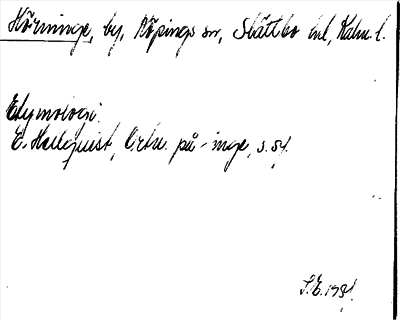 Hörninge, by, Köpings sn, Slättbo hd, Kalm. l.
Etymologi:
E. Hellquist, Ortn. på -inge, s. 54.
S.E. 1931.